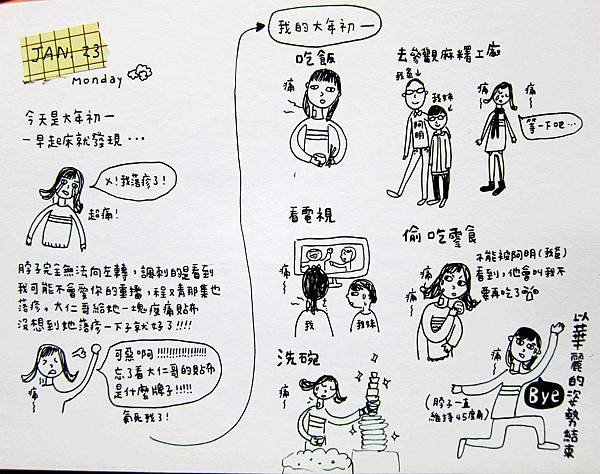 JAN 23
Monday
今天是大年初一
一早起床就發現...
X!我落疹了!
超痛!
脖子完全無法向左轉,諷刺的是看到
我可能不會愛你的重播,程又青那集也
落疹。大仁哥給她一塊痠痛貼布
沒想到她落疹一下子就好了!!!!
痛
可惡啊!!!!!!!!!!!!!!!!
忘了看大仁哥的貼布
是什麼牌子!!!!!
氣死我了!
我的大年初一
吃飯
痛
去參觀麻糬工廠
我爸
我妹
阿明
痛
痛
等一下吧...
看電視
痛
我
我妹
偷吃零食
不能被阿明(我爸)
看到,他會叫我不
要再吃了
痛
洗碗
痛
以華麗的姿勢結束
痛
Bye
(脖子一直
維持45度角)